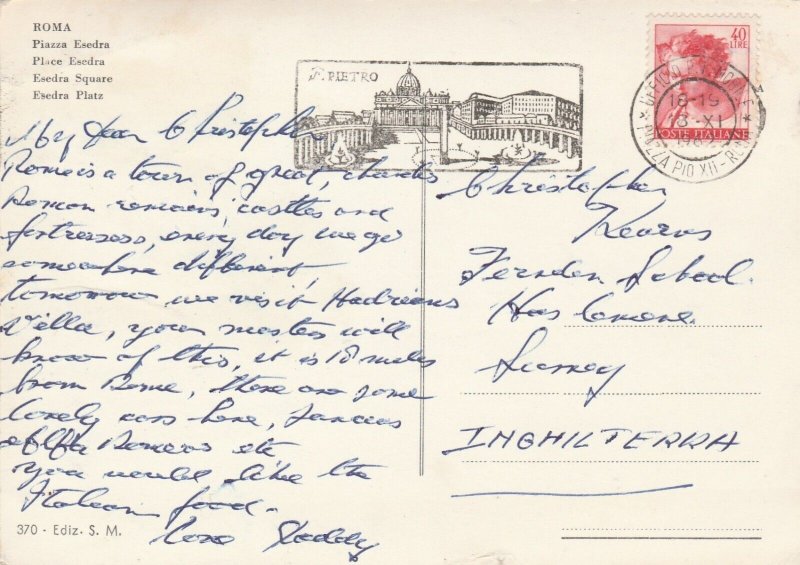 ROMA
Piazza Esedra
Place Esedra
Esedra Square
Esedra Platz
S. PIETRO
40
LIRE
POSTE ITALIANE
18-19
PIAZZA PIO XII - ROMA
My dear Christopher
Rome is a town of great, churches
Roman remains, castles and
fortresses, every day we go
somewhere different,
tomorrow we visit Hadriens
Villa, your masters will
know of this, it is 18 miles
from Rome, there are some
lovely cars here, Lancias
Alfa Romeos etc
You would like the
Italian food.
Love Daddy
Christopher
Kearns
Fernden School.
Haslemere.
Surrey
INGHILTERRA
370 - Ediz. S. M.